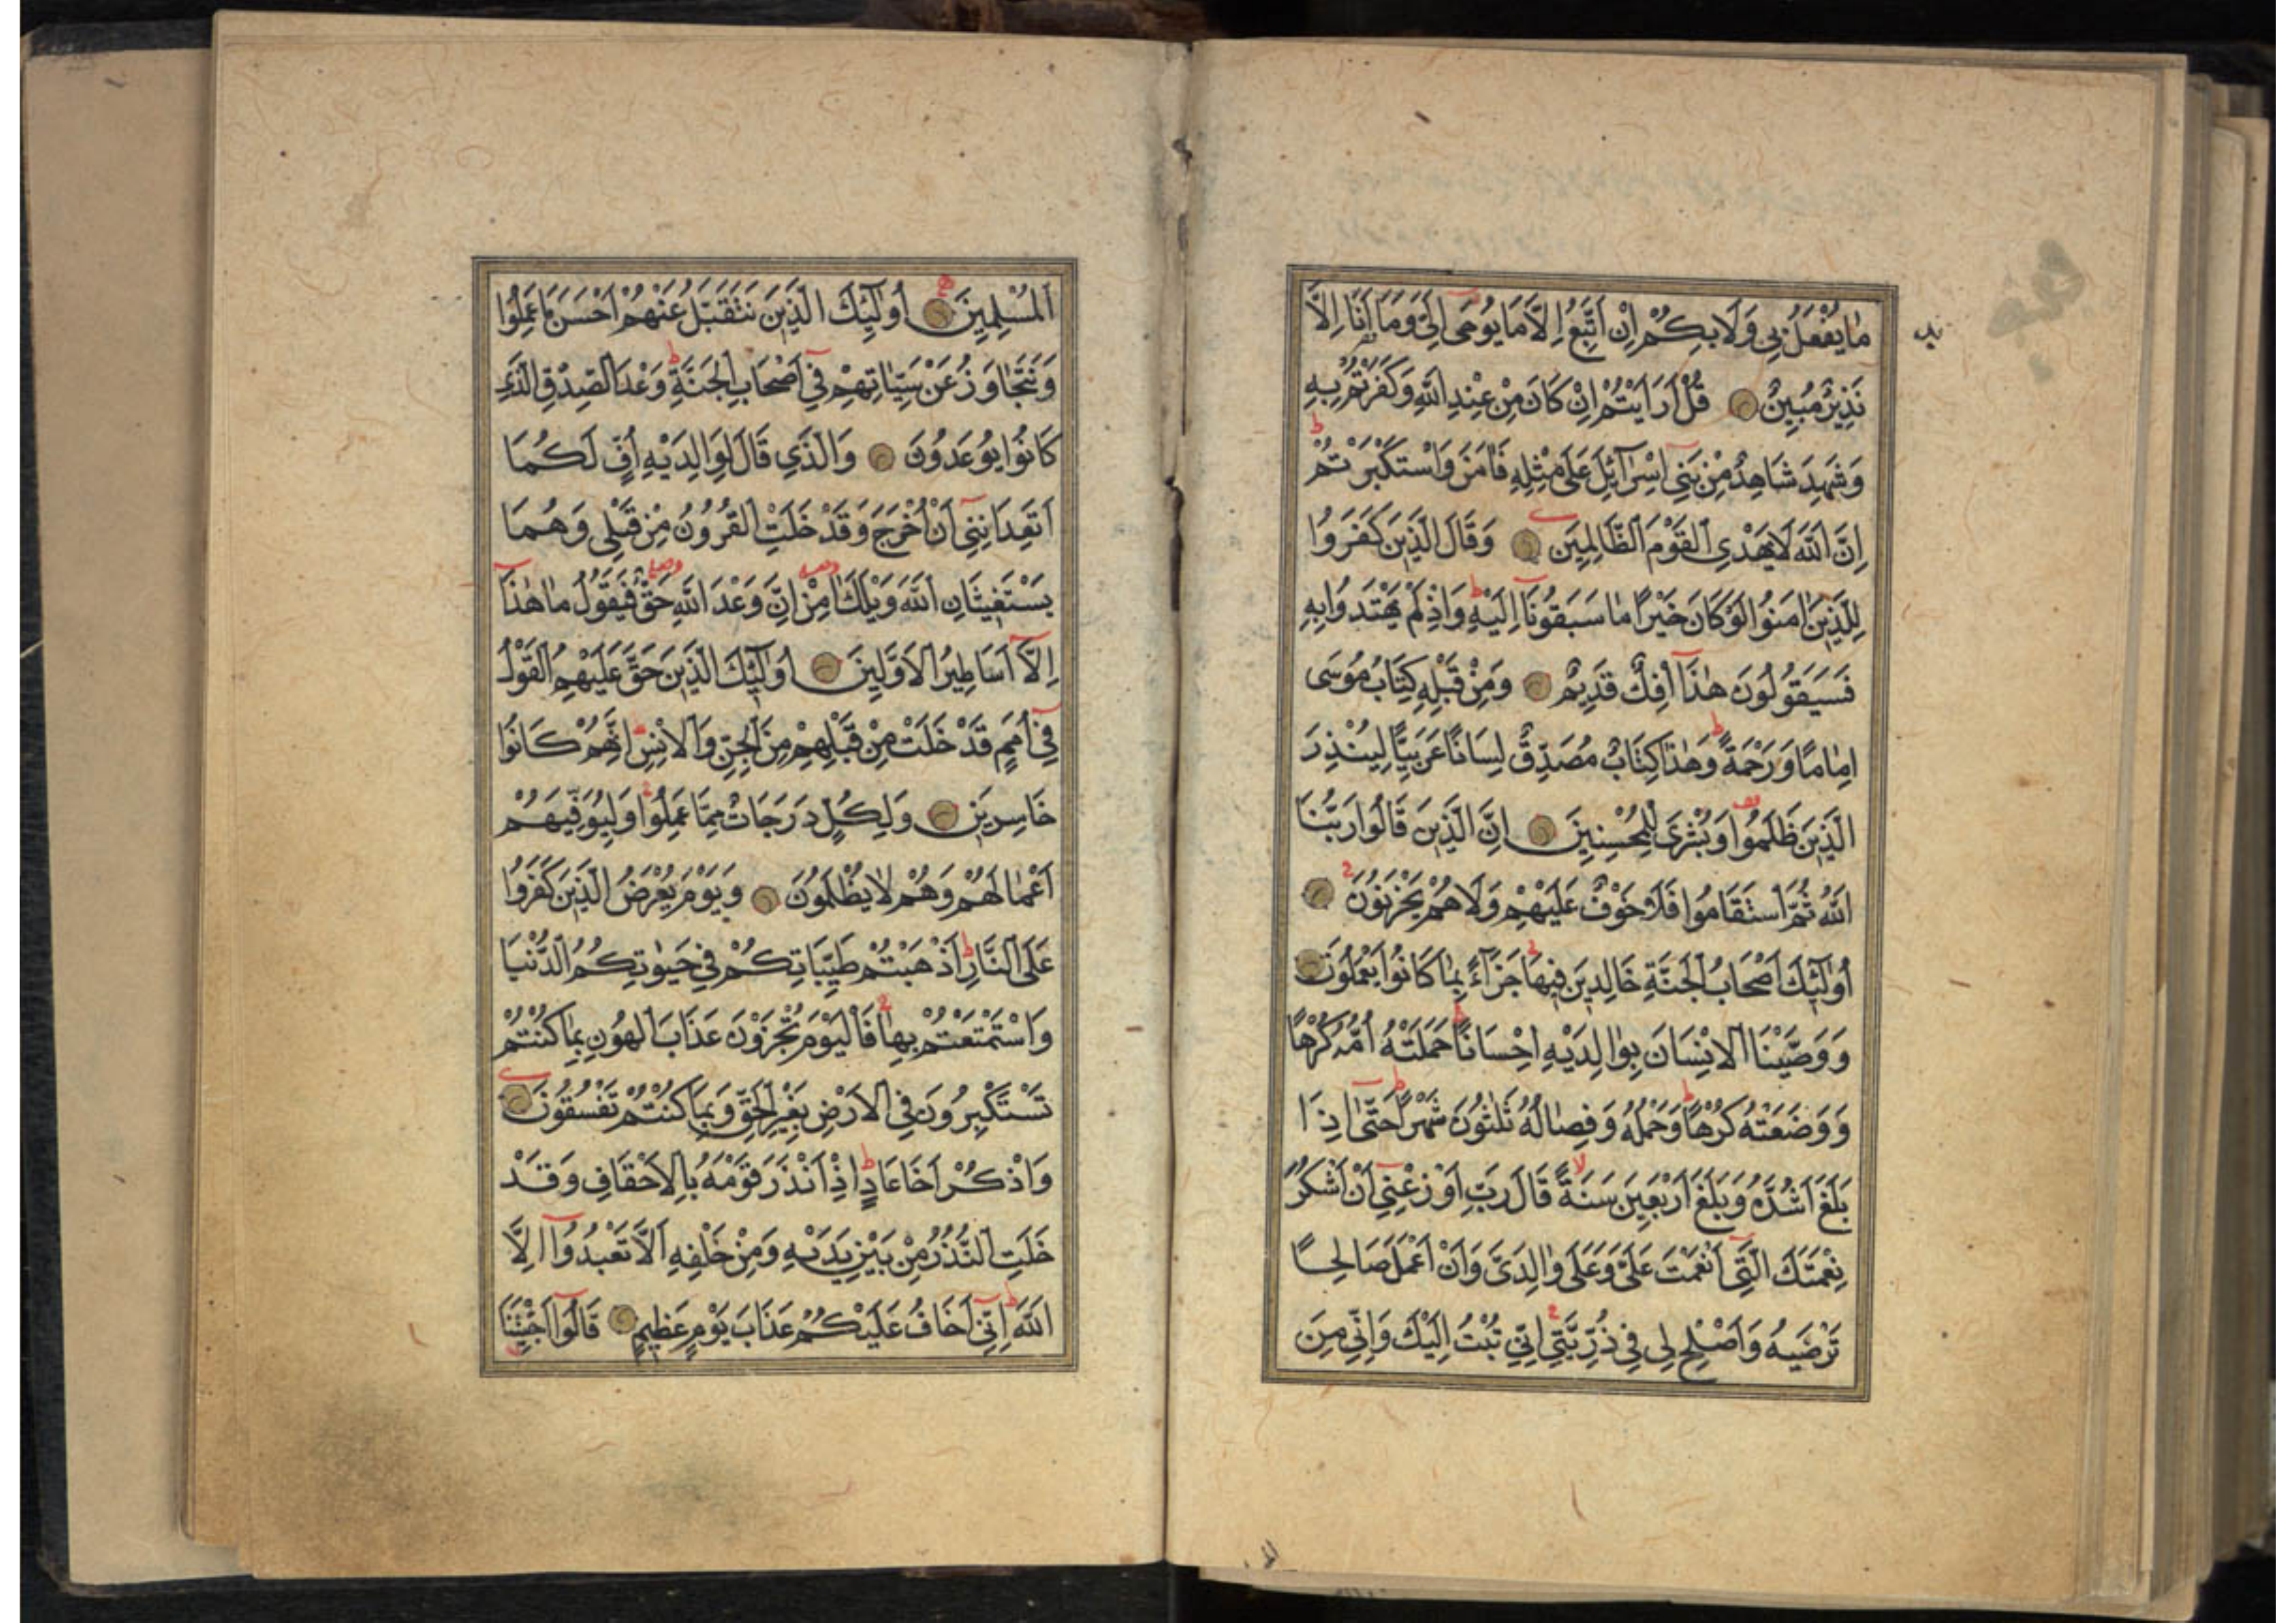 مَا يُفْعَلُ بِي وَلَا بِكُمْ اِنْ اَتَّبِعُ اِلَّا مَا يُوحٰى اِلَيَّ وَمَا اَنَا۬ اِلَّا
نَذِيرٌ مُبِينٌ قُلْ اَرَاَيْتُمْ اِنْ كَانَ مِنْ عِنْدِ اللّٰهِ وَكَفَرْتُمْ بِهِ
وَشَهِدَ شَاهِدٌ مِنْ بَنِي اِسْرَآئِلَ عَلٰى مِثْلِهِ فَاٰمَنَ وَاسْتَكْبَرْتُمْ
اِنَّ اللّٰهَ لَا يَهْدِي الْقَوْمَ الظَّالِمِينَ وَقَالَ الَّذِينَ كَفَرُوا
لِلَّذِينَ اٰمَنُوا لَوْ كَانَ خَيْرًا مَا سَبَقُونَا اِلَيْهِ وَاِذْ لَمْ يَهْتَدُوا بِهِ
فَسَيَقُولُونَ هٰذَا اِفْكٌ قَدِيمٌ وَمِنْ قَبْلِهِ كِتَابُ مُوسٰى
اِمَامًا وَرَحْمَةً وَهٰذَا كِتَابٌ مُصَدِّقٌ لِسَانًا عَرَبِيًّا لِيُنْذِرَ
الَّذِينَ ظَلَمُوا وَبُشْرٰى لِلْمُحْسِنِينَ اِنَّ الَّذِينَ قَالُوا رَبُّنَا
اللّٰهُ ثُمَّ اسْتَقَامُوا فَلَا خَوْفٌ عَلَيْهِمْ وَلَا هُمْ يَحْزَنُونَ
اُولٰٓئِكَ اَصْحَابُ الْجَنَّةِ خَالِدِينَ فِيهَا جَزَآءً بِمَا كَانُوا يَعْمَلُونَ
وَوَصَّيْنَا الْاِنْسَانَ بِوَالِدَيْهِ اِحْسَانًا حَمَلَتْهُ اُمُّهُ كُرْهًا
وَوَضَعَتْهُ كُرْهًا وَحَمْلُهُ وَفِصَالُهُ ثَلٰثُونَ شَهْرًا حَتّٰى اِذَا
بَلَغَ اَشُدَّهُ وَبَلَغَ اَرْبَعِينَ سَنَةً قَالَ رَبِّ اَوْزِعْنِي اَنْ اَشْكُرَ
نِعْمَتَكَ الَّتِي اَنْعَمْتَ عَلَيَّ وَعَلٰى وَالِدَيَّ وَاَنْ اَعْمَلَ صَالِحًا
تَرْضٰيهُ وَاَصْلِحْ لِي فِي ذُرِّيَّتِي اِنِّي تُبْتُ اِلَيْكَ وَاِنِّي مِنَ
الْمُسْلِمِينَ اُولٰٓئِكَ الَّذِينَ نَتَقَبَّلُ عَنْهُمْ اَحْسَنَ مَا عَمِلُوا
وَنَتَجَاوَزُ عَنْ سَيِّاٰتِهِمْ فِي اَصْحَابِ الْجَنَّةِ وَعْدَ الصِّدْقِ الَّذِي
كَانُوا يُوعَدُونَ وَالَّذِي قَالَ لِوَالِدَيْهِ اُفٍّ لَكُمَا
اَتَعِدَانِنِي اَنْ اُخْرَجَ وَقَدْ خَلَتِ الْقُرُونُ مِنْ قَبْلِي وَهُمَا
يَسْتَغِيثَانِ اللّٰهَ وَيْلَكَ اٰمِنْ اِنَّ وَعْدَ اللّٰهِ حَقٌّ فَيَقُولُ مَا هٰذَا
اِلَّا اَسَاطِيرُ الْاَوَّلِينَ اُولٰٓئِكَ الَّذِينَ حَقَّ عَلَيْهِمُ الْقَوْلُ
فِي اُمَمٍ قَدْ خَلَتْ مِنْ قَبْلِهِمْ مِنَ الْجِنِّ وَالْاِنْسِ اِنَّهُمْ كَانُوا
خَاسِرِينَ وَلِكُلٍّ دَرَجَاتٌ مِمَّا عَمِلُوا وَلِيُوَفِّيَهُمْ
اَعْمَالَهُمْ وَهُمْ لَا يُظْلَمُونَ وَيَوْمَ يُعْرَضُ الَّذِينَ كَفَرُوا
عَلَى النَّارِ اَذْهَبْتُمْ طَيِّبَاتِكُمْ فِي حَيٰوتِكُمُ الدُّنْيَا
وَاسْتَمْتَعْتُمْ بِهَا فَالْيَوْمَ تُجْزَوْنَ عَذَابَ الْهُونِ بِمَا كُنْتُمْ
تَسْتَكْبِرُونَ فِي الْاَرْضِ بِغَيْرِ الْحَقِّ وَبِمَا كُنْتُمْ تَفْسُقُونَ
وَاذْكُرْ اَخَا عَادٍ اِذْ اَنْذَرَ قَوْمَهُ بِالْاَحْقَافِ وَقَدْ
خَلَتِ النُّذُرُ مِنْ بَيْنِ يَدَيْهِ وَمِنْ خَلْفِهِ اَلَّا تَعْبُدُوا اِلَّا
اللّٰهَ اِنِّي اَخَافُ عَلَيْكُمْ عَذَابَ يَوْمٍ عَظِيمٍ قَالُوا اَجِئْتَنَا